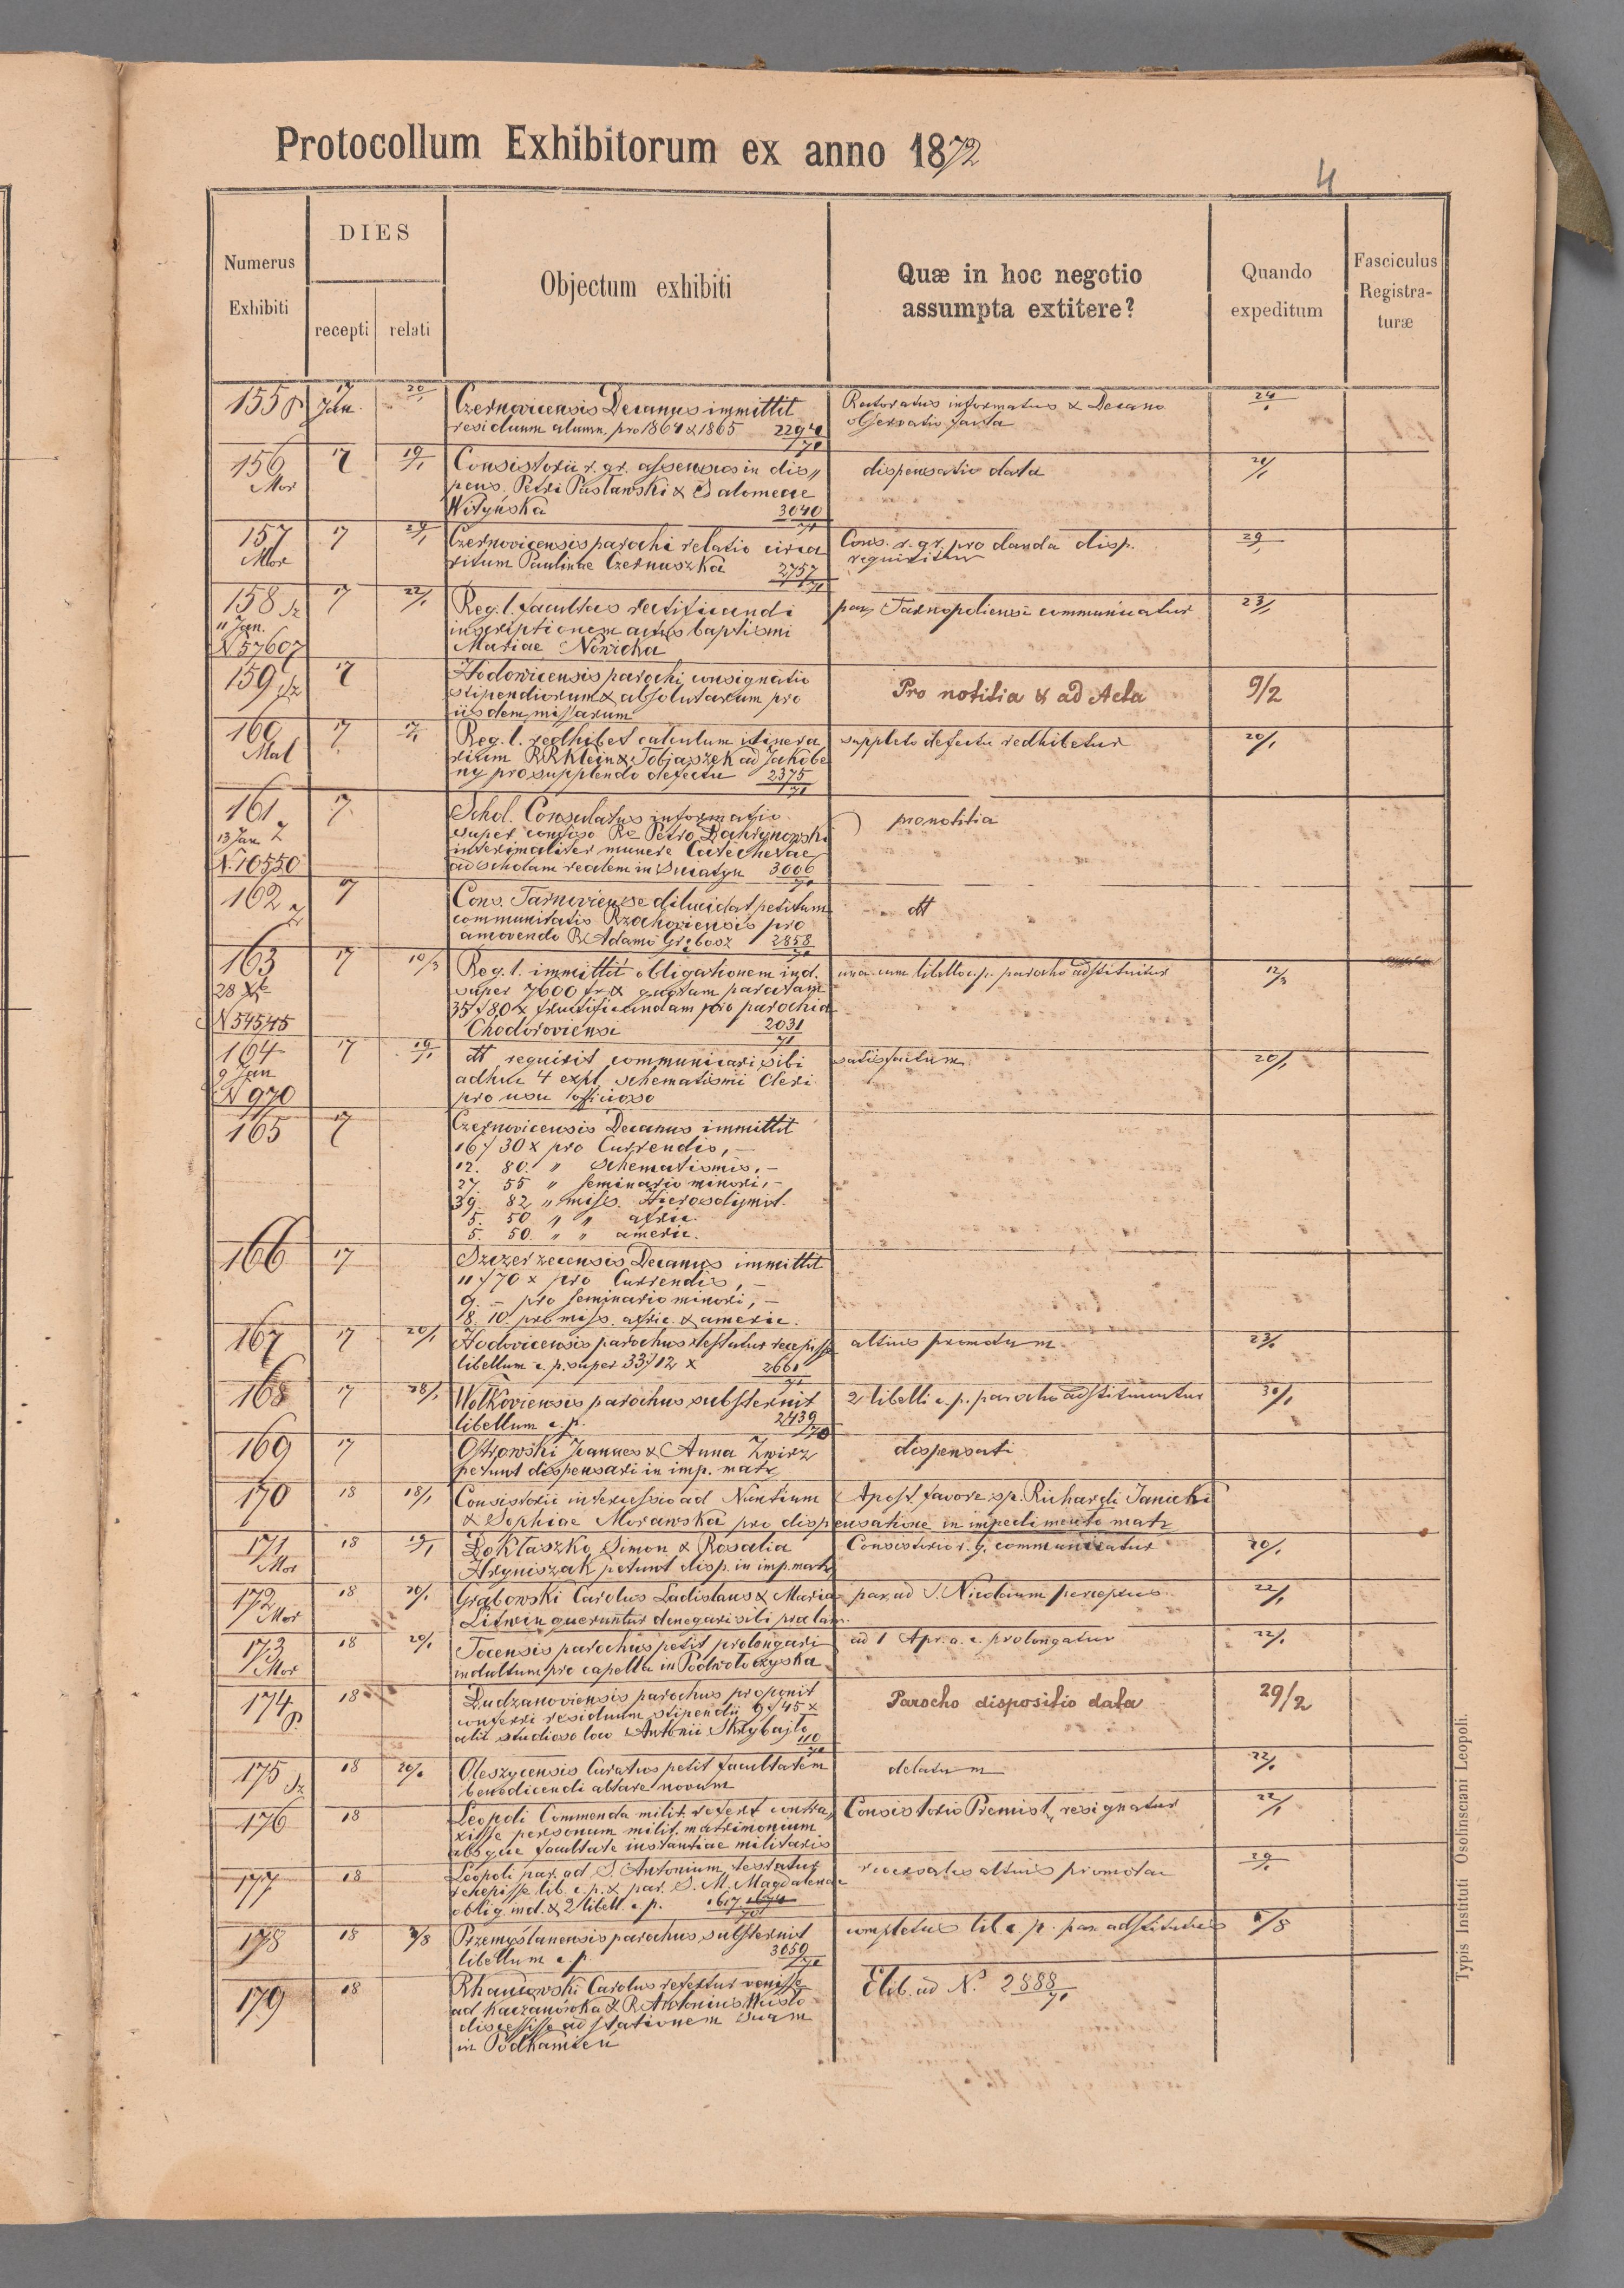 Protocollum Exhibitorum ex anno 1872
4
Numerus Exhibiti
DIES
recepti
relati
Objectum exhibiti
Quæ in hoc negotio assumpta extitere?
Quando expeditum
Fasciculus Registraturæ
155 17 Jan. 20/1 Czernovicensis Decanus immittit Rectoratus informatus & Decano 24/1
residuum alumn. pro 1864 & 1865 2294/71 observatio facta
156 Mor 17 19/1 Consistorii r. gr. assensus in dis„ dispensatio data 20/1
pens. Petri Pasławski & Salomeae
Wityńska 3040/71
157 Mor 17 Czernovicensis parochi relatio circa Cons. r. gr. pro danda disp. 29/1
ritum Paulinae Czernuszka 2757/71 requiritur
158 Sz 17 22/1 Reg. l. facultas rectificandi par. Tarnopoliensi communicatur 23/1
11 Jan. inscriptionem actus baptismi
N 57607 Mariae Nowicka
159 Sz 17 Hodovicensis parochi consignatio Pro notitia & ad Acta 9/2
stipendiorum & absolutarum pro
iisdem missarum
160 Mal 17 17/1 Reg. l. redhibet calculum itinera suppleto defectu redhibetur 20/1
rium RR Klein & Tobjaszek ad Jakobe
ny pro supplendo defectu 2375/71
161 17 Schol. Consulatus informatio pro notitia
13 Jan super conciso Ro Petro
N. 10550 interimaliter munere Catechetae
ad scholam realem in Sniatyn 3006/71
162 17 Cons. Tarnoviense dilucidat petitum dtt
communitatis Rzochoviensis pro
amovendo R Adamo Grębosz 2858/71
163 17 10/3 Reg. l. immittit obligationem ind. una cum libello c. p. parocho adstituitur 12/3
28 Xb super 7600 fr & quotam paratam
N 54545 35 f 80 x fructificandam pro parochia
Chodoroviense 2031/71
164 17 19/1 dtt requirit communicari sibi satisfactum 20/1
9 Jan adhuc 4 expl. schematismi Cleri
N 970 pro usu officioso
165 17 Czernovicensis Decanus immittit
16 f 30 x pro Currendis, –
12. 80. " Schematismis, –
27. 55 " seminario minori, –
39. 82 " miss. Hierosolymit.
5. 50 " " afric.
5. 50. " " americ.
166 17 Szczerzecensis Decanus immittit
11 f 70 x pro Currendis, –
9. – pro seminario minori, –
18. 10. pro miss. afric. & americ.
167 17 20/1 Hodovicensis parochus testatur recepisse altius promotum 23/1
libellum c. p. super 33 f 12 x 2661/71
168 17 28/1 Wołkoviensis parochus substernit 2 libelli c. p. parocho adstituuntur 30/1
libellum c. p. 2439/70
169 17 Ostrowski Joannes & Anna Zwirz dispensati
petunt dispensari in imp. matr
170 18 18/1 Consistorii intercessio ad Nuntium Apost. favore sp. Richardi Janicki
& Sophiae Morawska pro dispensatione in impedimento matr
171 Mor 18 19/1 Doktaszko Simon & Rosalia Consistorio r. g. communicatur 20/1
Hryniszak petunt disp. in imp. matr
172 Mor 18 20/1 Grabowski Carolus Ladislaus & Maria par. ad S. Nicolaum perceptus 22/1
Litwin queruntur denegari sibi proclam.
173 Mor 18 20/1 Tocensis parochus petit prolongari ad 1 Apr. a. c. prolongatur 22/1
indultum pro capella in Podwołoczyska
174 18 Budzanoviensis parochus proponit Parocho dispositio data 29/2
conferri residuum stipendii 9 f 45 x
alii studioso loco Antonii Skrzybajło
110/72
175 Sz 18 20/1 Oleszycensis Curatus petit facultatem delatum 22/1
benedicendi altare novum
176 18 Leopoli Commenda milit. refert contra„ Consistorio Premisl. resignatur 22/1
xisse personam milit. matrimonium
absque facultate instantiae militaris
177 18 Leopoli par. ad S Antonium testatur reversales altius promotae 29/1
recepisse lib. c. p. & par. S. M. Magdalenae
oblig. ind. & 2 libell. c. p. 1617
178 18 Przemyślanensis parochus substernit completus lib c p. par. adstituitur 6/8
libellum c. p. 3059/71
179 18 Carolus refertur venisse Elib. ad N. 2888/71
ad Kaczanówka & R Antonius
discessisse ad stationem suam
in Podkamień
Typis Instituti Ossolinsciani Leopoli.